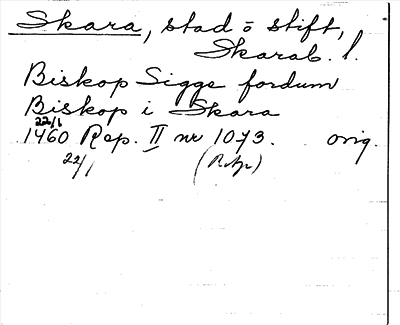 Skara, stad o stift,
Skarab. l.
Biskop Sigge fordum
Biskop i Skara
22/1
1460 Rep. II nr 1073. orig.
22/1